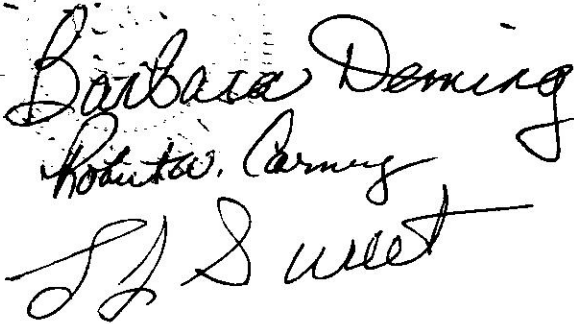 Barbara Deming
Robert W. Carney
L L Sweet